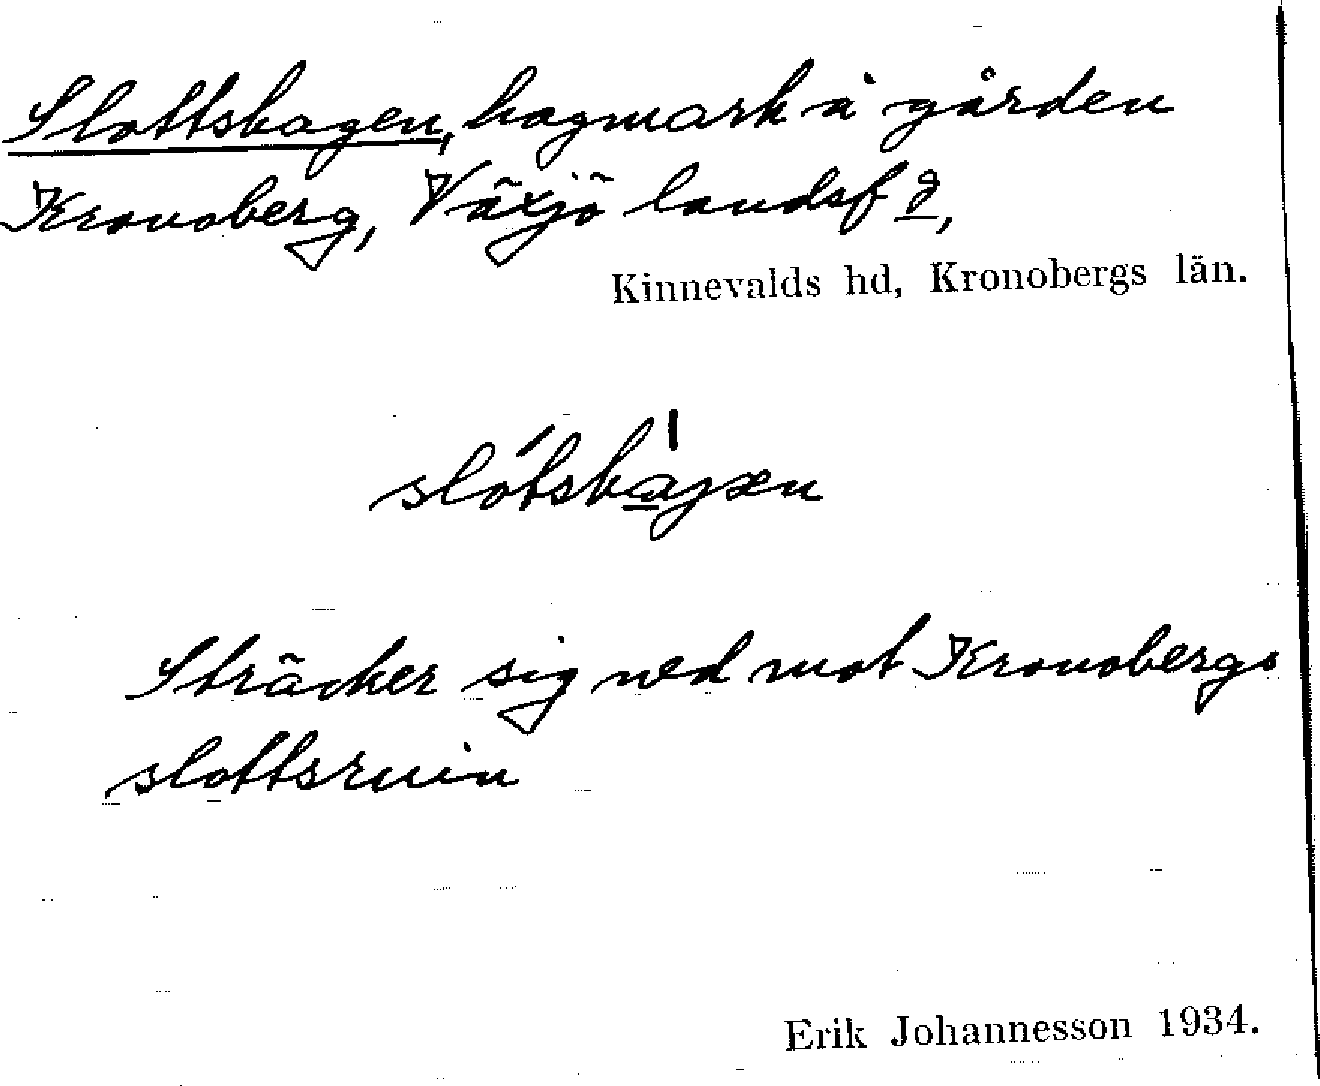 Slottshagen, hagmark å gården
Kronoberg, Växjö landsfg,
Kinnevalds hd, Kronobergs län.
slo̍tsha̍gæn
Sträcker sig ned mot Kronobergs
slottsruin
Erik Johannesson 1934.